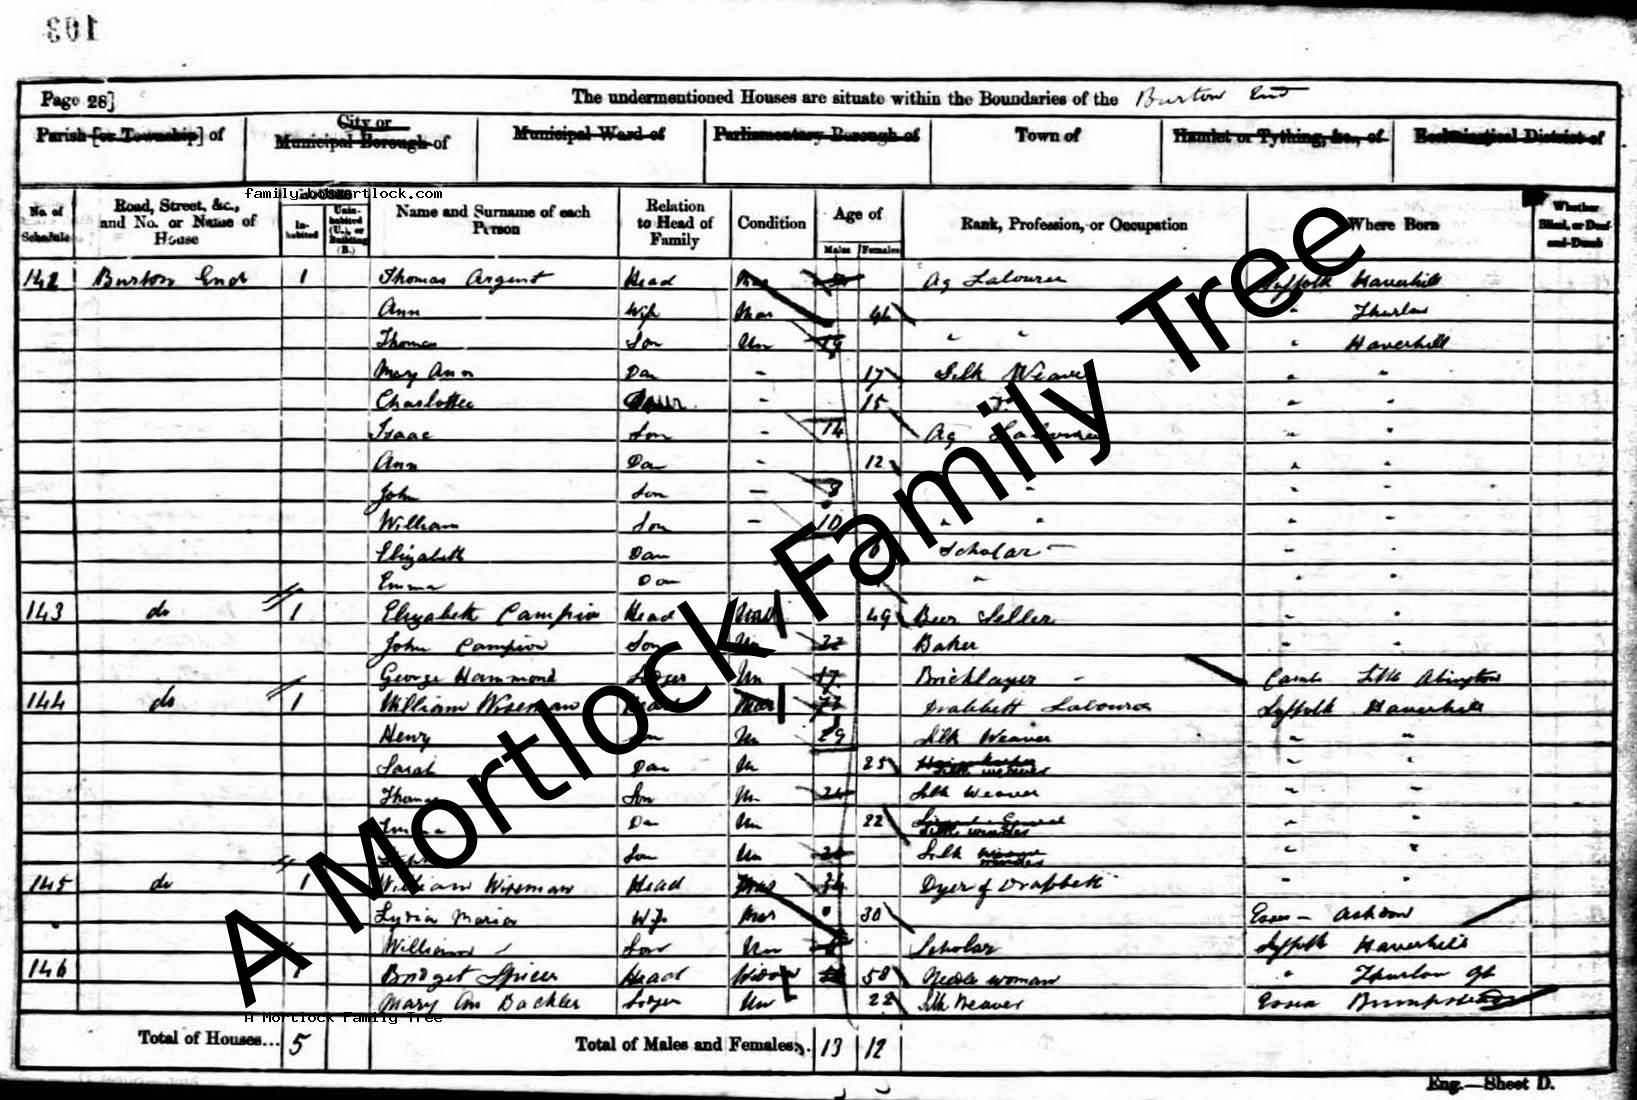 103
Page 28] The undermentioned Houses are situate within the Boundaries of the Burton End
Parish [or Township] of City or Municipal Borough of Municipal Ward of Parliamentary Borough of Town of Hamlet or Tything, &c., of Ecclesiastical District of
family.bobmortlock.com
No. of Schedule Road, Street, &c., and No. or Name of House Inhabited Uninhabited (U.), or Building (B.) Name and Surname of each Person Relation to Head of Family Condition Age of Males Females Rank, Profession, or Occupation Where Born Whether Blind, or Deaf-and-Dumb
142 Burton End 1 Thomas Argent Head Mar Ag Labourer Suffolk Haverhill
Ann Wife Mar 46 " Thurlow
Thomas Son Un 19 " " " Haverhill
Mary Ann Dau - 17 Silk Weaver " "
Charlotte Daur - 15 " "
Isaac Son - 14 Ag Labourer " "
Ann Dau - 12 " "
John Son - 8 " " "
William Son - 10 " " " "
Elizabeth Dau Scholar " "
Emma Dau " " "
143 do 1 Elizabeth Campion Head 49 Beer Seller " "
John Campion Son Un 22 Baker " "
George Hammond Un 17 Bricklayer Camb Little Abington
144 do 1 William Wiseman Head Mar Drabbett Labourer Suffolk Haverhill
Henry Son Un 29 Silk Weaver " "
Sarah Dau Un 25 " "
Thomas Son Un 24 Silk Weaver " "
Emma Dau Un 22 " "
Son Un Silk " "
145 do 1 William Wiseman Head Mar 34 Dyer of Drabbett " "
Lydia Maria Wife Mar 30 Essex - Ashdon
William Son Un Scholar Suffolk Haverhill
146 1 Bridget Spicer Head Widow 58 Needle woman " Thurlow Gt
Mary Ann Backler Lodger Un 22 Silk Weaver Essex
A Mortlock Family Tree
Total of Houses... 5 Total of Males and Females... 13 12
Eng.—Sheet D.
A Mortlock Family Tree